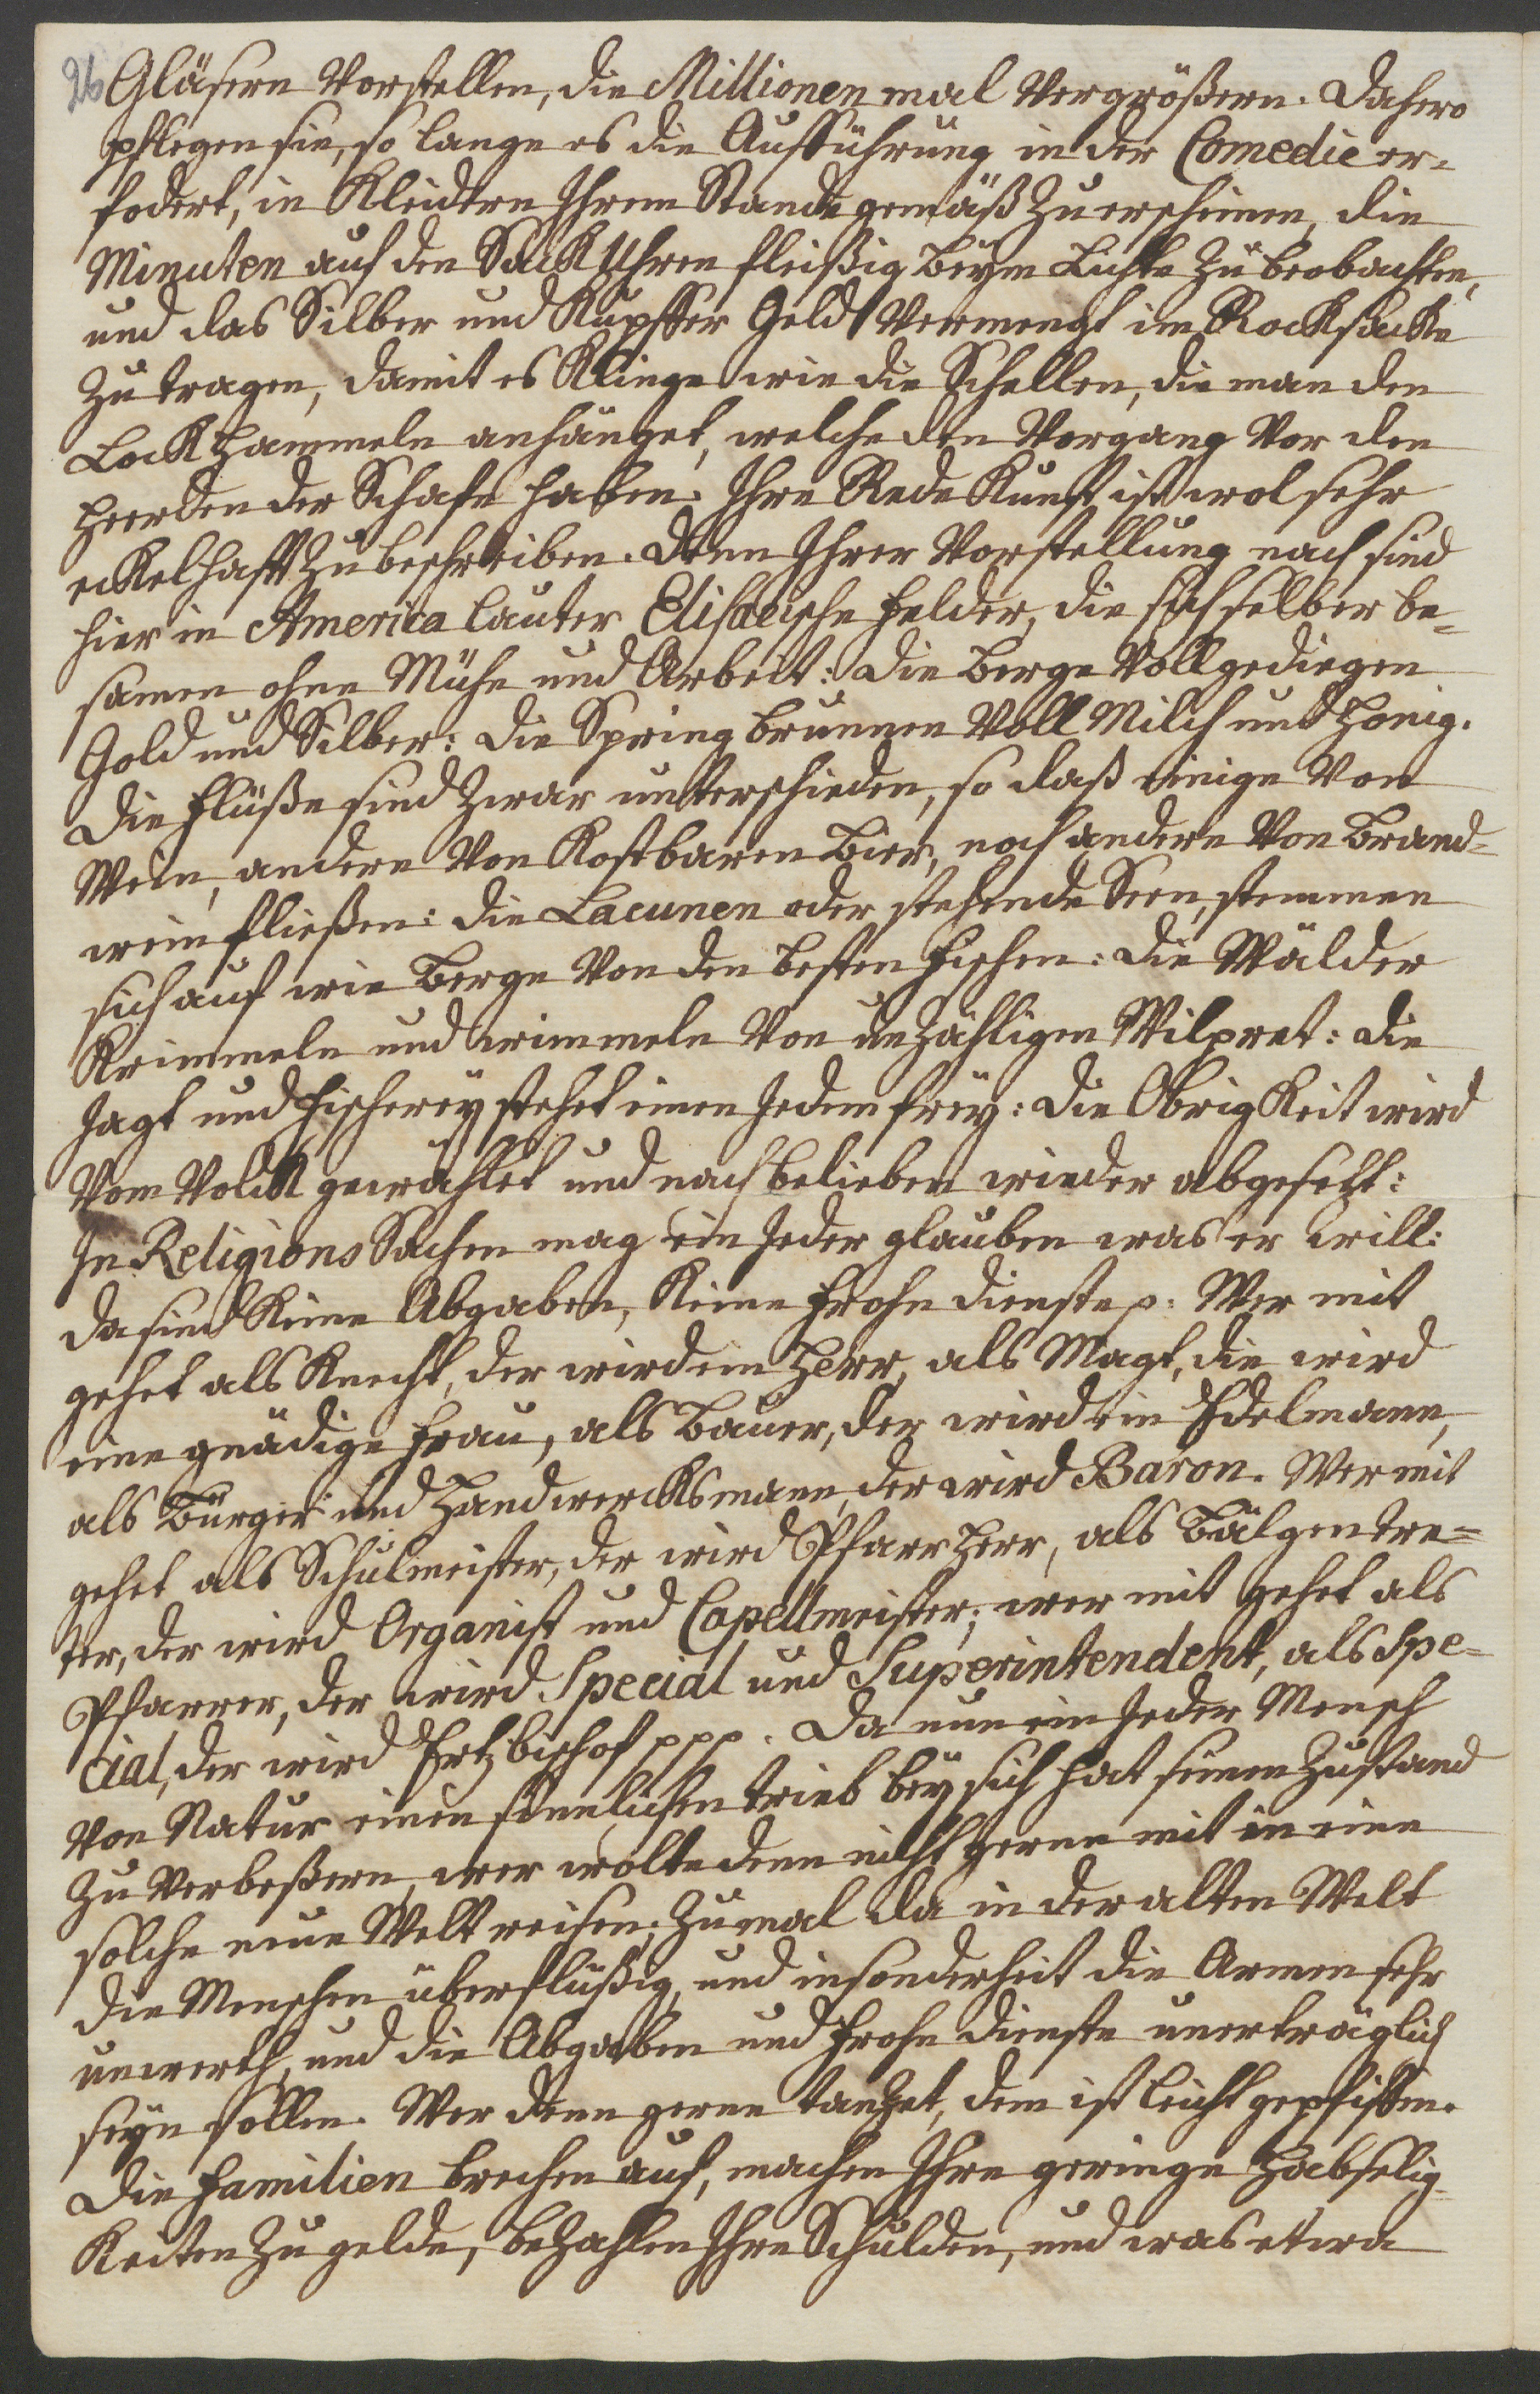 26 Gläsern Vorstellen, die Millionen mal Vergrößern. Dahero
pflegen sie, so lange es die Aufführung in der Comedie er-
fodert, in Kleidern Ihrem Stande gemäß zu erscheinen, die
Minuten auf den Sack Uhren fleißig beym Lichte zu beobachten,
und das Silber und Kupffer Geld Vermengt im Rocksacke
zu tragen, damit es Klinge wie die Schellen, die man den
Lock Hammeln anhänget, welche den Vorgang Vor den
Heerden der Schafe haben. Ihre Rede Kunst ist wol sehr
eckelhafft zu beschreiben. Denn Ihrer Vorstellung nach sind
hier in America lauter Elisaeische Felder, die sich selber be-
samen ohne Mühe und Arbeit: Die Berge Voll gediegen
Gold und Silber: Die Spring brunnen Voll Milch und Honig.
Die Flüße sind zwar unterschieden, so daß einige Von
Wein, andere Von Kostbaren Bier, noch andere Von Brand-
wein fließen: Die Lacunen oder stehende Seen, stemmen
sich auf wie Berge Von den besten Fischen: Die Wälder
Krimmeln und wimmeln Von unzähligen Wilpret: Die
Jagt und Fischerey stehet einen Jedem frey: Die Obrigkeit wird
Vom Volck gewählet und nach belieben wieder abgesetzt:
In Religions Sachen mag ein Jeder glauben was er will:
Da sind Keine Abgaben, Keine Frohn dienste p. Wer mit
gehet als Knecht, der wird ein Herr, als Magt, die wird
eine gnädige Frau, als Bauer, der wird ein Edelmann,
als Bürger und Handwercksmann, der wird Baron. Wer mit
gehet als Schulmeister, der wird Pfarr Herr, als Bälgentre-
ter, der wird Organist und Capellmeister; wer mit gehet als
Pfarrer, der wird Special und Superintendent, als Spe-
cial, der wird Ertzbischof ppp. Da nun ein Jeder Mensch
Von Natur einen sinnlichen trieb bey sich hat seinen Zustand
zu Verbeßern, wer wolte denn nicht gerne mit in eine
solche neue Welt reisen; zumal da in der alten Welt
die Menschen überflüßig, und insonderheit die Armen sehr
unwerth, und die Abgaben und Frohn dienste unerträglich
seyn sollen. Wer denn gerne tanzet, dem ist leicht gepfiffen.
Die Familien brechen auf, machen Ihre geringe Habselig-
Keiten zu gelde, bezahlen Ihre Schulden, und was etwa